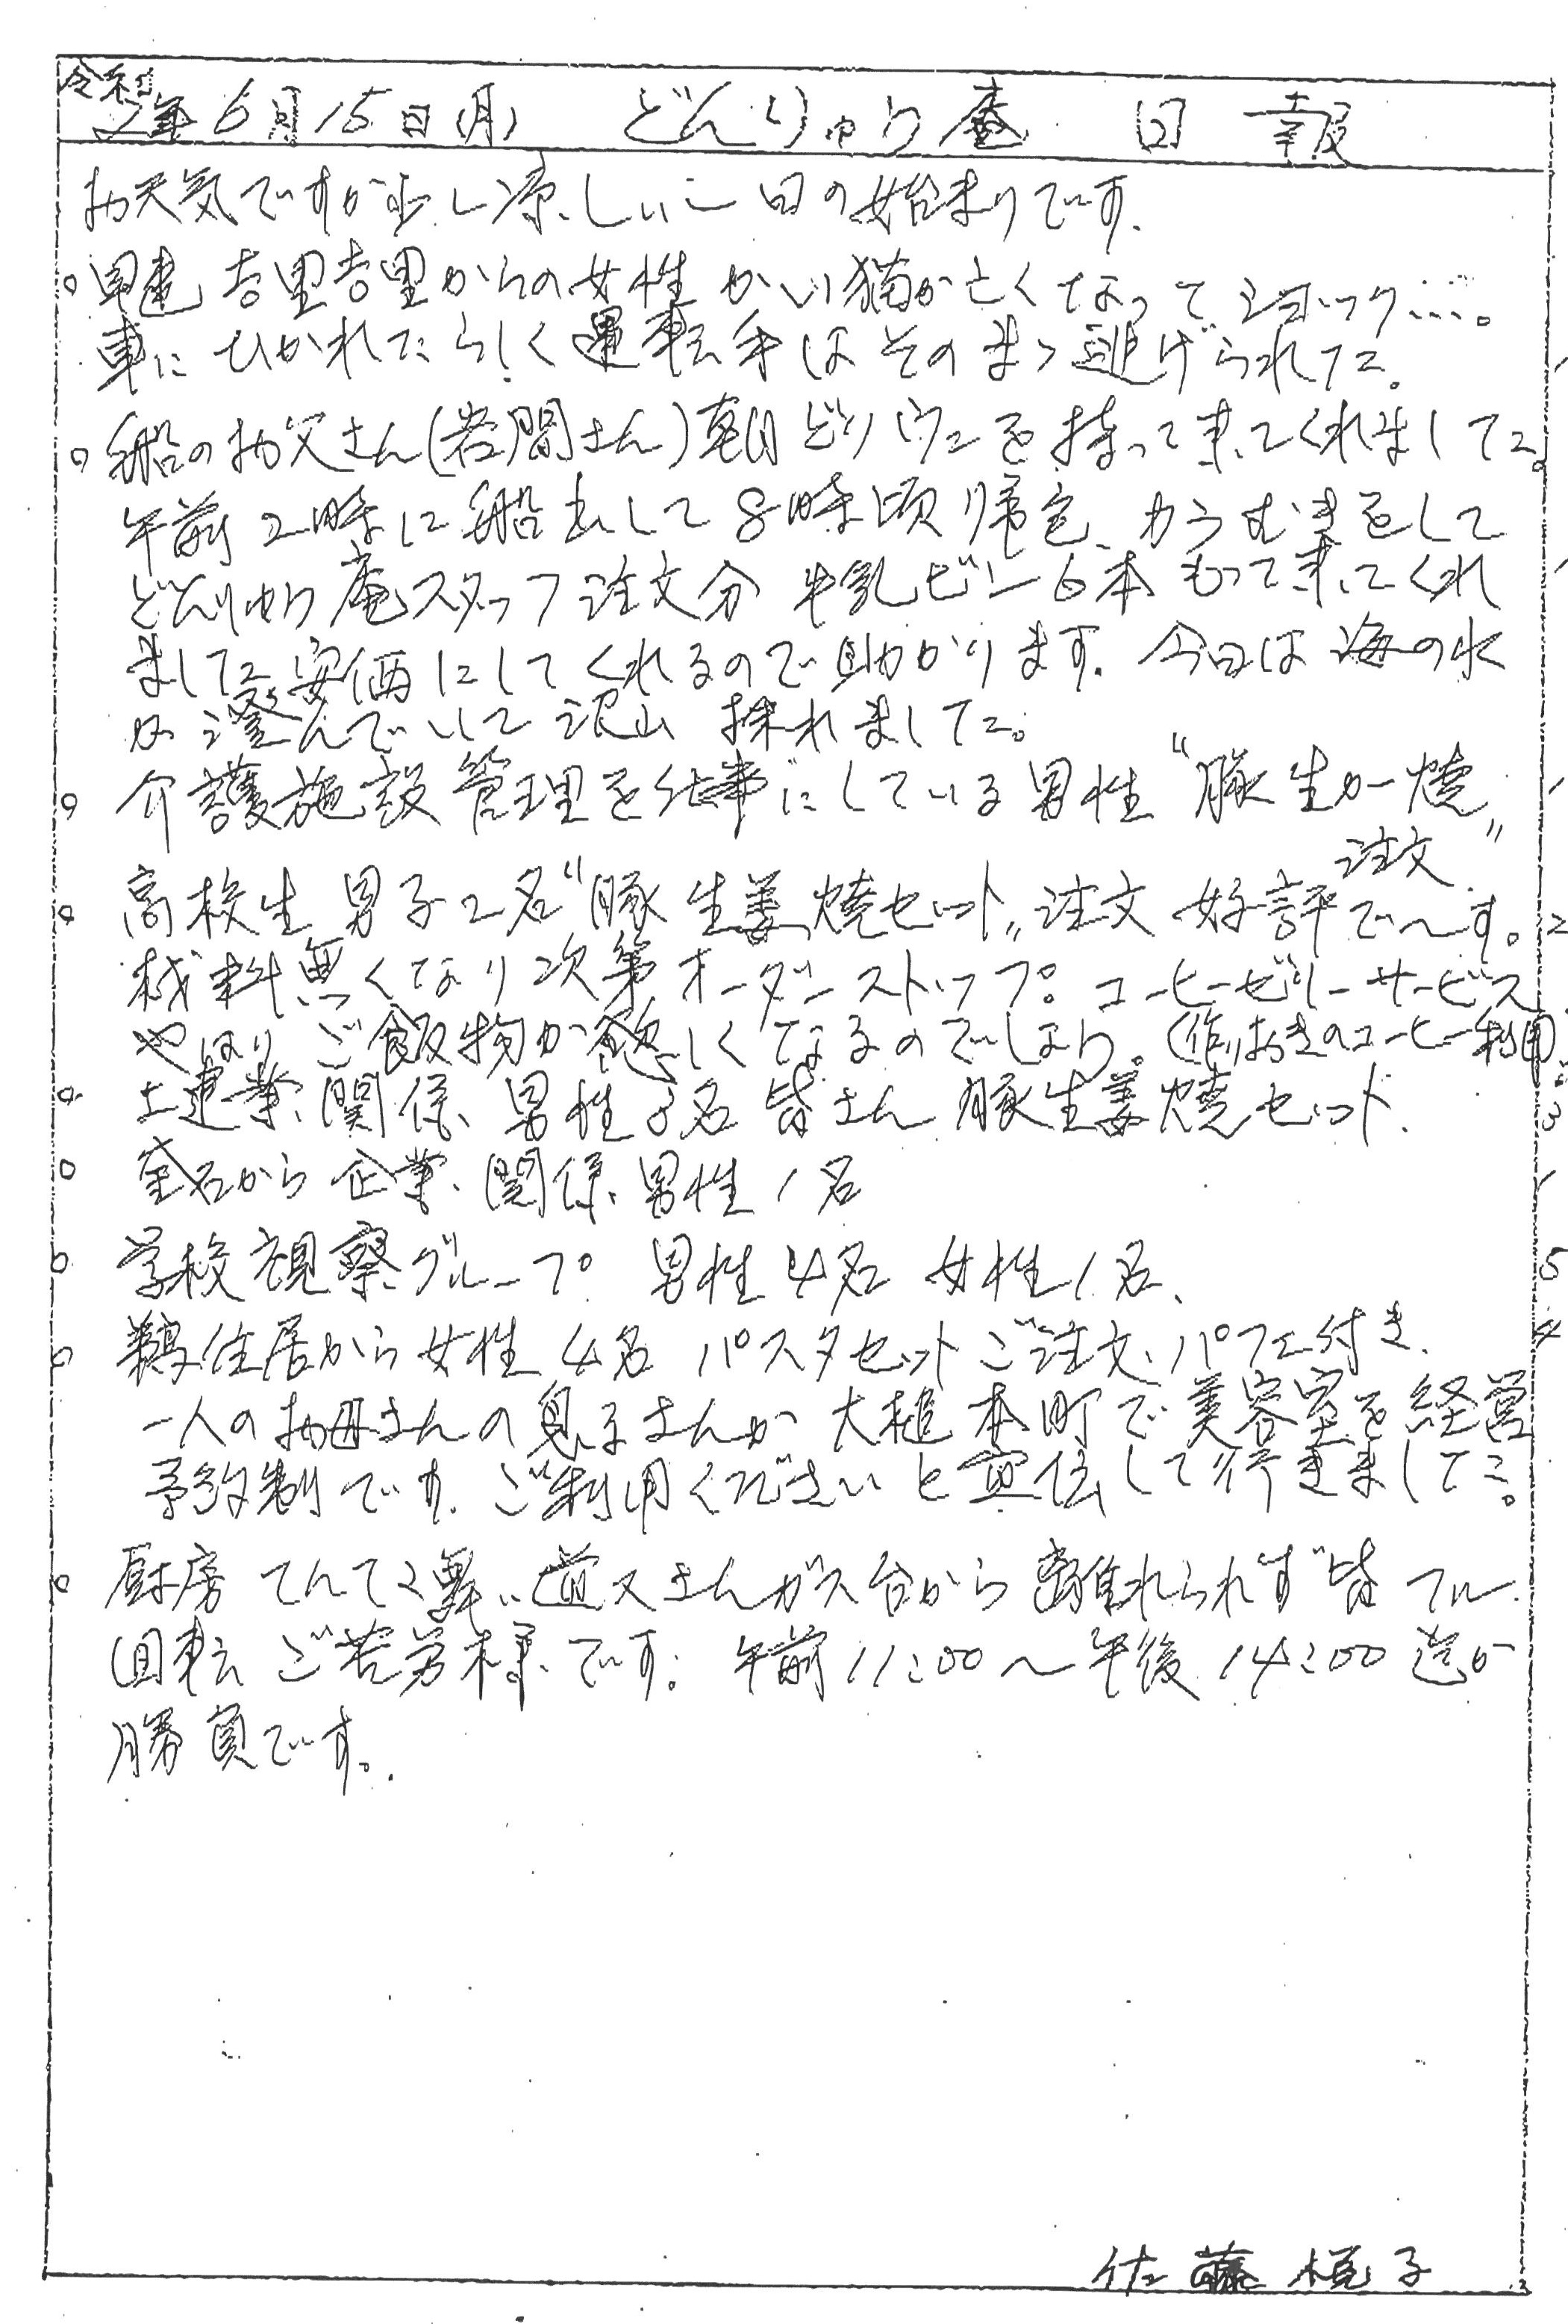 令和
2年6月15日(月) どんりゅう庵 日報
お天気ですが少し凉しい一日の始まりです.
○早速 吉里吉里からの女性 かい猫が亡くなってショック…。
車にひかれたらしく運転手はそのまゝ逃げられた. 1
○船のお父さん(岩間さん)朝どりウニを持って来てくれました。
午前2時に船出して8時頃帰宅、カラむきをして
どんりゅう庵スタッフ注文分 牛乳ビン6本もって来てくれ 1
ました 安価にしてくれるので助かります. 今日は海の水
が澄んでいて沢山 採れました。
○ 介護施設管理を仕事にしている男性 "豚生が焼" 1
注文.
○ 高校生 男子2名 "豚生姜焼セット" 注文 好評で〜す。 2
材料無くなり次第オーダーストップ。コーヒーゼリーサービス
やはりご飯物が恋しくなるのでしょう。(作りおきのコーヒー利用)
○ 土建業関係 男性3名 皆さん 豚生姜焼セット. 3
○ 釜石から企業関係 男性1名 1
○ 学校視察グループ 男性4名 女性1名、 5
○ 鵜住居から女性 4名 パスタセットご注文、パフェ付き. 4
一人のお母さんの息子さんが大槌本町で美容室を経営
予約制です. ご利用くださいと宣伝して行きました。
○ 厨房 てんてこ舞い 道又さんガス台から離れられず 皆フル
回転 ご苦労様です. 午前11:00〜午後14:00迄が
勝負です。
佐藤 悦子